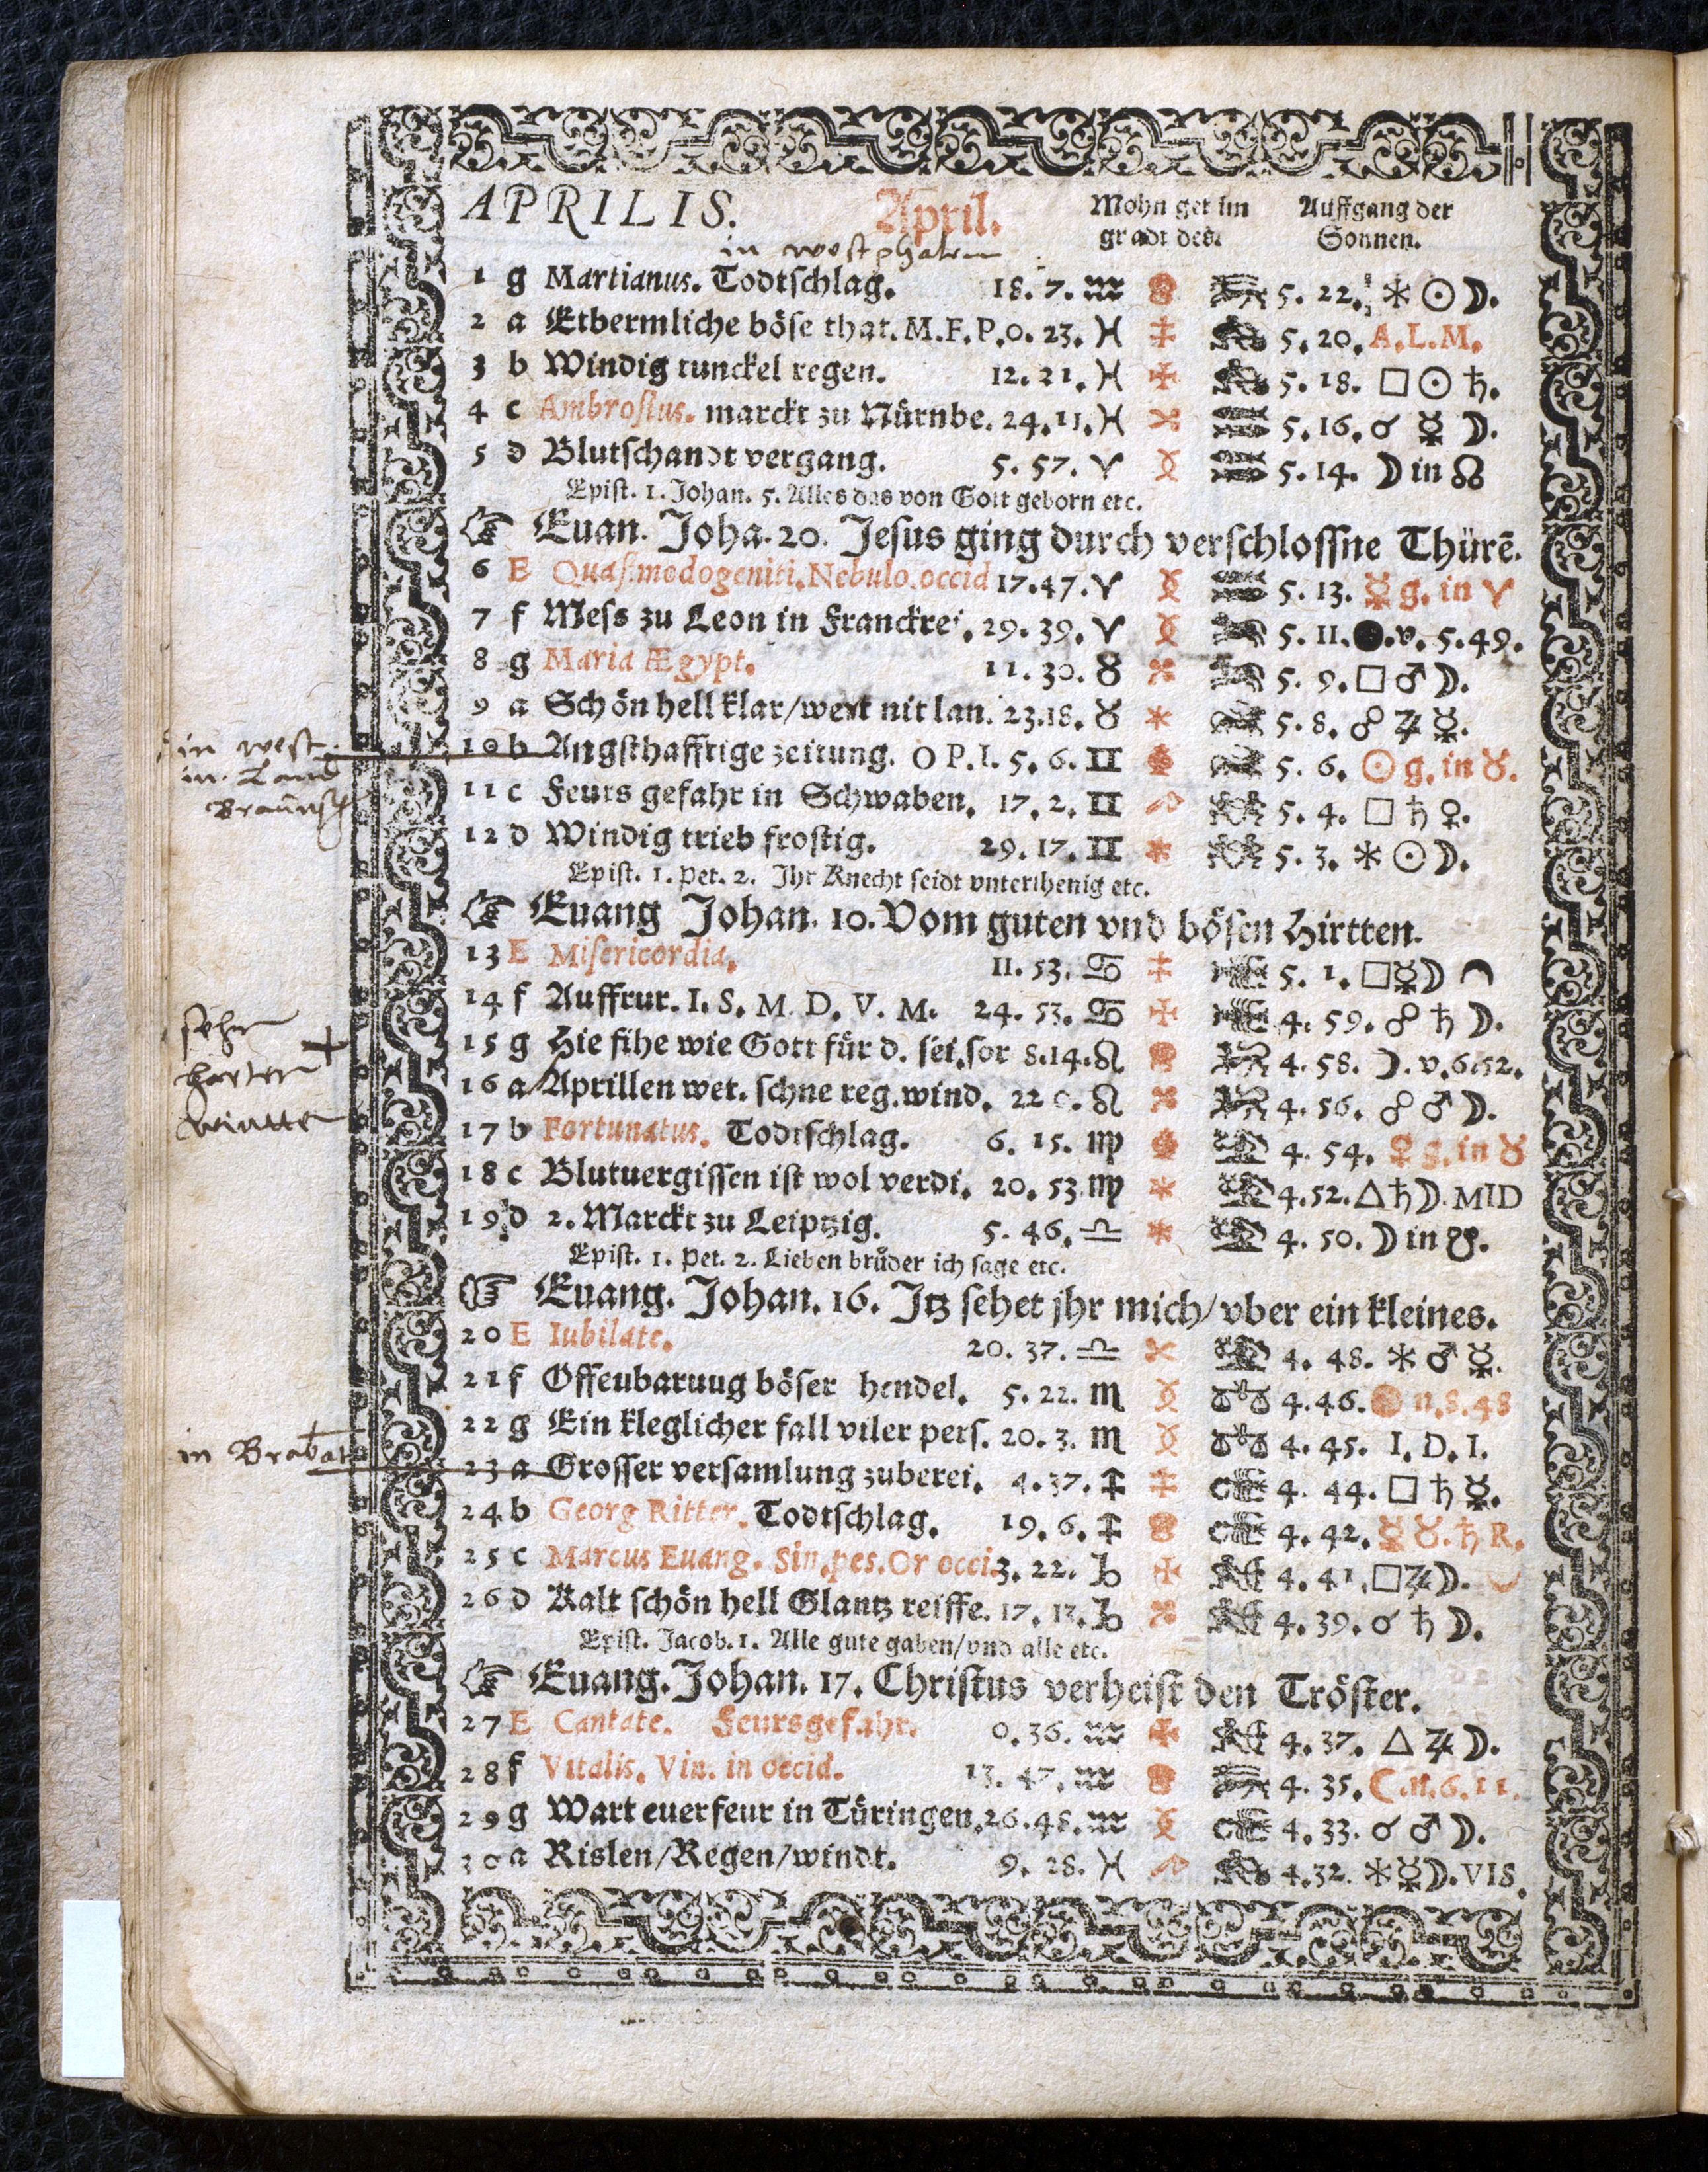 APRILIS. April. Mohn get im Auffgang der
gradt des. Sonnen.
in westphalen
1 g Martianus. Todtschlag. 18. 7. ♒ 5. 22. ⚹ ☉ ☽.
2 a Erbermliche böse that. M.F.P. 0. 23. ♓ 5. 20. A.L.M.
3 b Windig tunckel regen. 12. 21. ♓ 5. 18. □ ☉ ♄.
4 c Ambrosius. marckt zu Nürnbe. 24. 11. ♓ 5. 16. ☌ ☿ ☽.
5 d Blutschandt vergang. 5. 57. ♈ 5. 14. ☽ in ☊
Epist. 1. Johan. 5. Alles das von Gott geborn etc.
☞ Euan. Joha. 20. Jesus ging durch verschlossne Thürē.
6 E Quasimodogeniti. Nebulo. occid 17. 47. ♈ 5. 13. ☿ g. in ♈
7 f Mess zu Leon in Franckrei. 29. 39. ♈ 5. 11. ●. v. 5. 49.
8 g Maria Ægypt. 11. 30. ♉ 5. 9. □ ♂ ☽.
9 a Schön hell klar/wert nit lan. 23. 18. ♉ 5. 8. ☍ ♃ ☿.
in west
10 b Angsthafftige zeitung. O P. I. 5. 6. ♊ 5. 6. ☉ g. in ♉.
in Land
Braunsch
11 c Feurs gefahr in Schwaben. 17. 2. ♊ 5. 4. □ ♄ ♀.
12 d Windig trieb frostig. 29. 17. ♊ 5. 3. ⚹ ☉ ☽.
Epist. 1. Pet. 2. Ihr Knecht seidt vnterthenig etc.
☞ Euang Johan. 10. Vom guten vnd bösen Hirtten.
13 E Misericordia. 11. 53. ♋ 5. 1. □ ☿ ☽
14 f Auffrur. I. S. M. D. V. M. 24. 53. ♋ 4. 59. ☍ ♄ ☽.
sehr
harter
wintter
15 g Hie sihe wie Gott für d. sei. sor 8. 14. ♌ 4. 58. ☽. v. 6. 52.
16 a Aprillen wet. schne reg. wind. 22 0. ♌ 4. 56. ☍ ♂ ☽.
17 b Fortunatus. Todtschlag. 6. 15. ♍ 4. 54. ♀ g. in ♉
18 c Blutuergissen ist wol verdi. 20. 53 ♍ 4. 52. △ ♄ ☽. MID
19 d 2. Marckt zu Leiptzig. 5. 46. ♎ 4. 50. ☽ in ☋.
Epist. 1. Pet. 2. Lieben brůder ich sage etc.
☞ Euang. Johan. 16. Itz sehet jhr mich/vber ein kleines.
20 E Iubilate. 20. 37. ♎ 4. 48. ⚹ ♂ ☿.
21 f Offeubaruug böser hendel. 5. 22. ♏ 4. 46. n. 8. 48
22 g Ein kleglicher fall viler pers. 20. 3. ♏ 4. 45. I. D. I.
in Brabat
23 a Grosser versamlung zuberei. 4. 37. ♐ 4. 44. □ ♄ ☿.
24 b Georg Ritter. Todtschlag. 19. 6. ♐ 4. 42. ☿ ♉. ♄ R.
25 c Marcus Euang. Sin. pes. Or occi. 3. 22. ♑ 4. 41. □ ♃ ☽.
26 d Kalt schön hell Glantz reiffe. 17. 13. ♑ 4. 39. ☌ ♄ ☽.
Epist. Jacob. 1. Alle gute gaben/vnd alle etc.
☞ Euang. Johan. 17. Christus verheist den Tröster.
27 E Cantate. Feursgefahr. 0. 36. ♒ 4. 37. △ ♃ ☽.
28 f Vitalis. Vin. in occid. 13. 47. ♒ 4. 35. ☾. n. 6. 11.
29 g Wart euer feur in Türingen. 26. 48. ♒ 4. 33. ☌ ♂ ☽.
30 a Rislen/Regen/windt. 9. 28. ♓ 4. 32. ⚹ ☿ ☽. VIS.